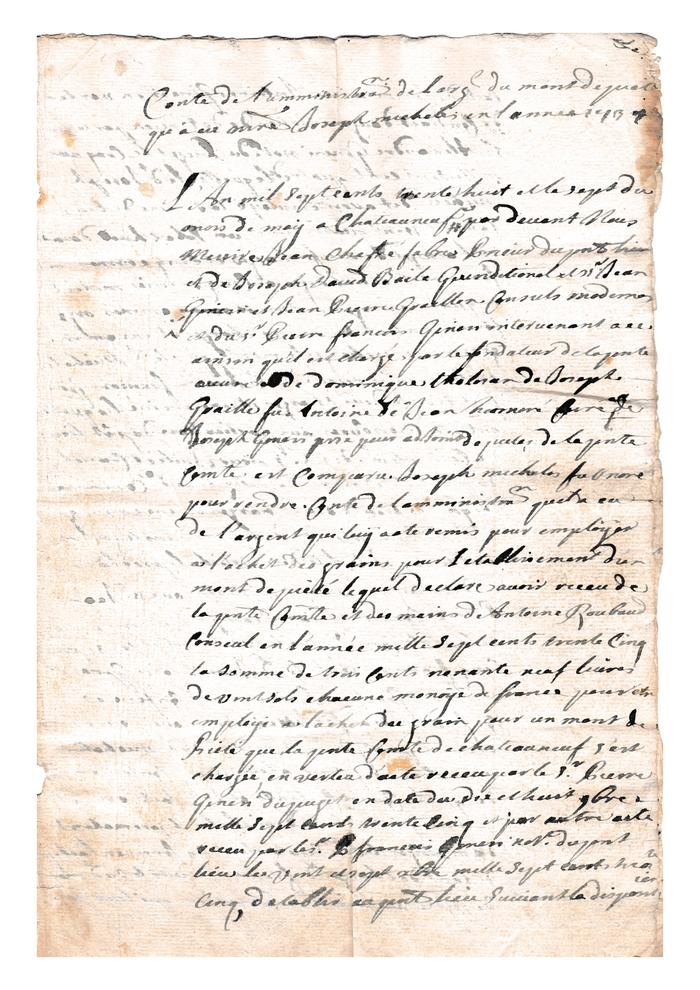 Conte de l'amministra.on de l'arg.t du mont de pieté
qu'a eu mire Joseph michel en l'annee 1737
L'An mil Sept cents trente huit et le sept du
mois de may a Chateauneuf par devant Nous
Messire Jean Chafre fabre Prieur du pnt lieu
et de Joseph David Baile et s.r Jean
Ginies et Jean Pierre Graillon Consuls modernes
et du s.r Pierre francois Ginies intervenant a ce
ainsin qu'il est charge par le fondateur de la pnte
œuvre et de dominique tholosan de Joseph
Graille fu Antoine de Jean honnoré
Joseph Ginies pris pour adioins deputes de la pnte
Comté est Comparu Joseph michel fu
pour rendre Conte de l'amministra.on quil a eu
de l'argent qui luy a ete remis pour employer
a l'achet des grains pour l'etablissement du
mont de pieté lequel declare avoir receu de
la pnte Comté et des mains de Antoine Roubaud
Conseul en l'année mille Sept cents trente Cinq
la somme de trois Cents nonante neuf livres
de vint sols chacune monoye de france pour etre
employé a l'achet du grain pour un mont de
Pieté que la pnte Comté de chateauneuf s'est
chargée en vertu d'acte receu par le S.r Pierre
Ginies du puget en date du dix et huit 9bre
mille Sept Cents trente Cinq et par autre acte
receu par le s.r francois Ginies no.re du pnt
lieu le vint et sept mille Sept cents trente
Cinq d'etablir au pnt lieu suivant la disposi